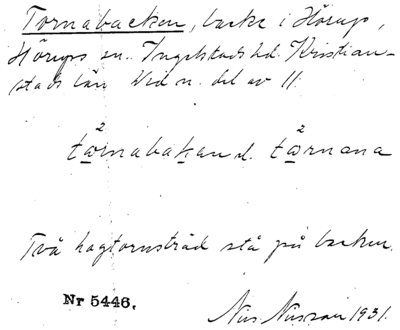 Tornabacken, backe i Hörup,
Hörups sn. Ingelstads hd. Kristian-
stads län Vid n. del av 11.
2 2
tωrnabakan el. tωrnana
Två hagtornsträd stå på backen.
Nr 5446. Nils Nilsson 1931.